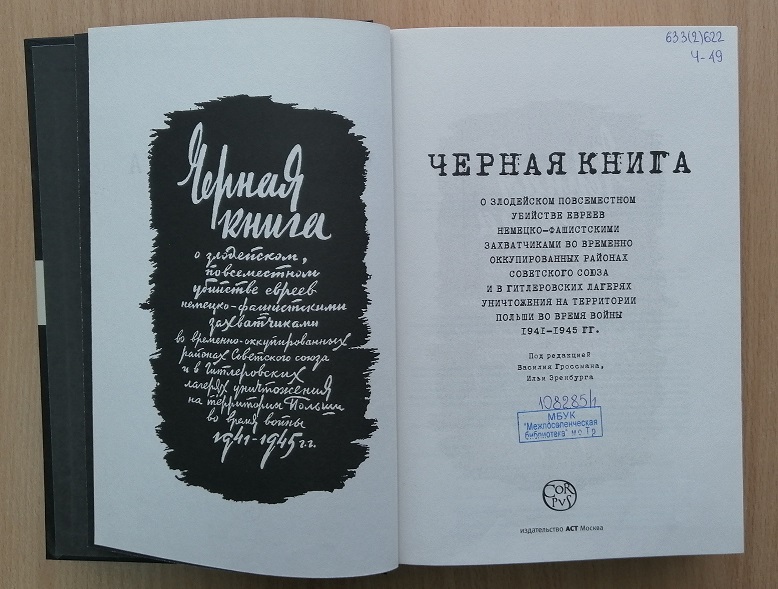 Черная
книга
о злодейском,
повсеместном
убийстве евреев
немецко-фашистскими
захватчиками
во временно-оккупированных
районах Советского союза
и в Гитлеровских
лагерях уничтожения
на территории Польши
во время войны
1941-1945 г.г.
633(2)622
Ч-49
ЧЕРНАЯ КНИГА
О ЗЛОДЕЙСКОМ ПОВСЕМЕСТНОМ
УБИЙСТВЕ ЕВРЕЕВ
НЕМЕЦКО-ФАШИСТСКИМИ
ЗАХВАТЧИКАМИ ВО ВРЕМЕННО
ОККУПИРОВАННЫХ РАЙОНАХ
СОВЕТСКОГО СОЮЗА
И В ГИТЛЕРОВСКИХ ЛАГЕРЯХ
УНИЧТОЖЕНИЯ НА ТЕРРИТОРИИ
ПОЛЬШИ ВО ВРЕМЯ ВОЙНЫ
1941-1945 ГГ.
Под редакцией
Василия Гроссмана,
Ильи Эренбурга
108285/1
МБУК
"Межпоселенческая
библиотека"
COR
PVS
издательство АСТ Москва